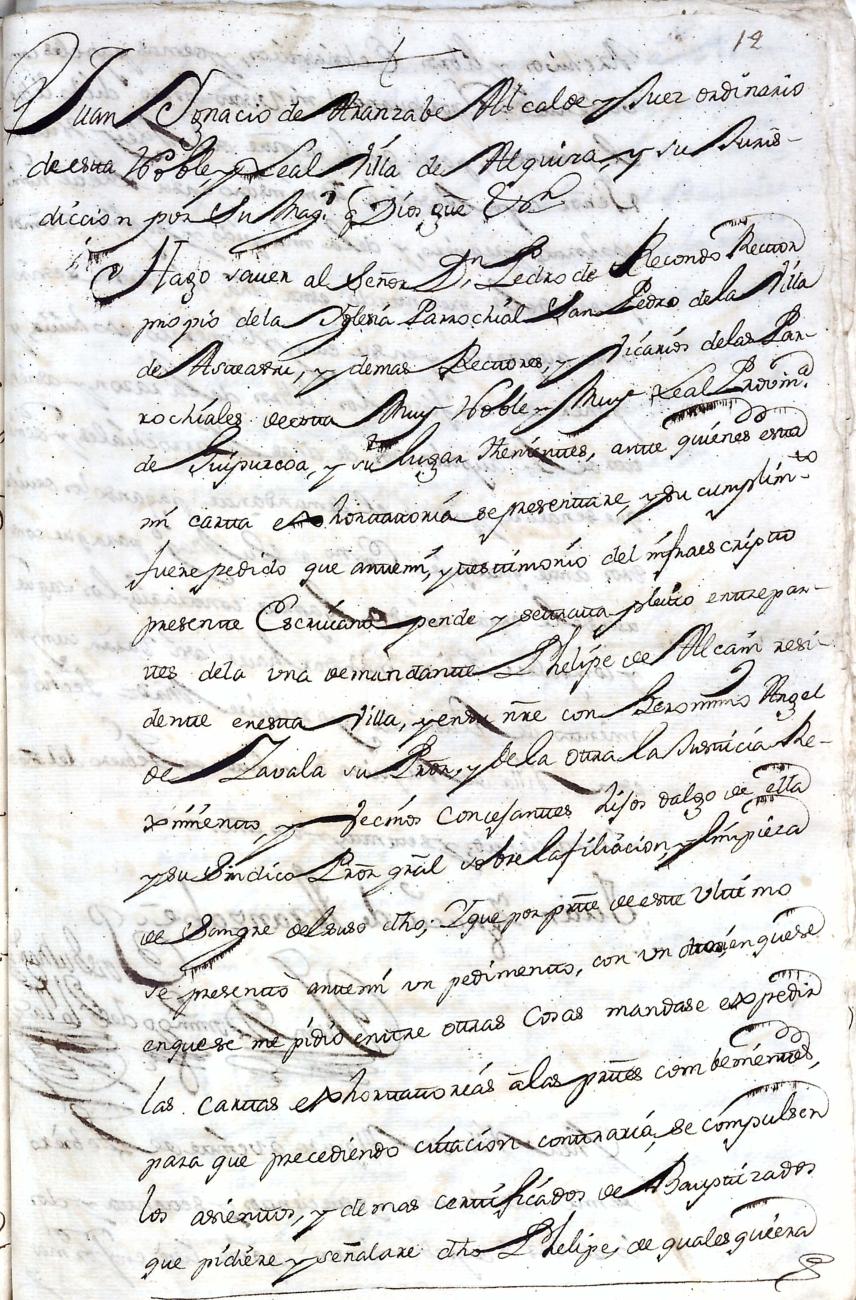 12
Juan Ygnacio de Aranzabe Alcalde y Juez ordinario
de esta Noble, y Leal Villa de Alquiza, y su Juris-
diccion por Su Mag.d q Dios gue &n
Hago saver al Señor Dn Pedro de Recondo Rector
propio de la Yglesia Parrochial San Pedro de la Villa
de Asteasu, y demas Rectores, y Vicarios de las Par-
rochiales de esta Muy Noble y Muy Leal Provin.a
de Guipuzcoa, y su lugar thenientes, ante quienes esta
mi carta exhortatoria se presentare, y su cumplim-to
fuere pedido que antemi, y testimonio del infraescripto
presente Escrivano pende y setrata pleito entre par-
tes dela una demandante Phelipe de Alcain resi-
dente en esta Villa, y en su nre con Geronimo Angel
de Zavala su Pror, y de la otra la Justicia Re-
ximiento, y Vecinos Concejantes hijos dalgo de ella
y su Sindico Pror gral sobre la filiacion, y limpieza
de Sangre del suso dho; Y que por prte de este Ultimo
se presento antemi un pedimento, con un otrosi en que se
en que se me pidio entre otras Cosas mandase expedir
las cartas exhortatorias a las prtes combenientes,
para que precediendo citacion contraria, se compulsen
los asientos, y demas certificados de Bauptizados
que pidiere y señalare dho Phelipe, de quales quiera